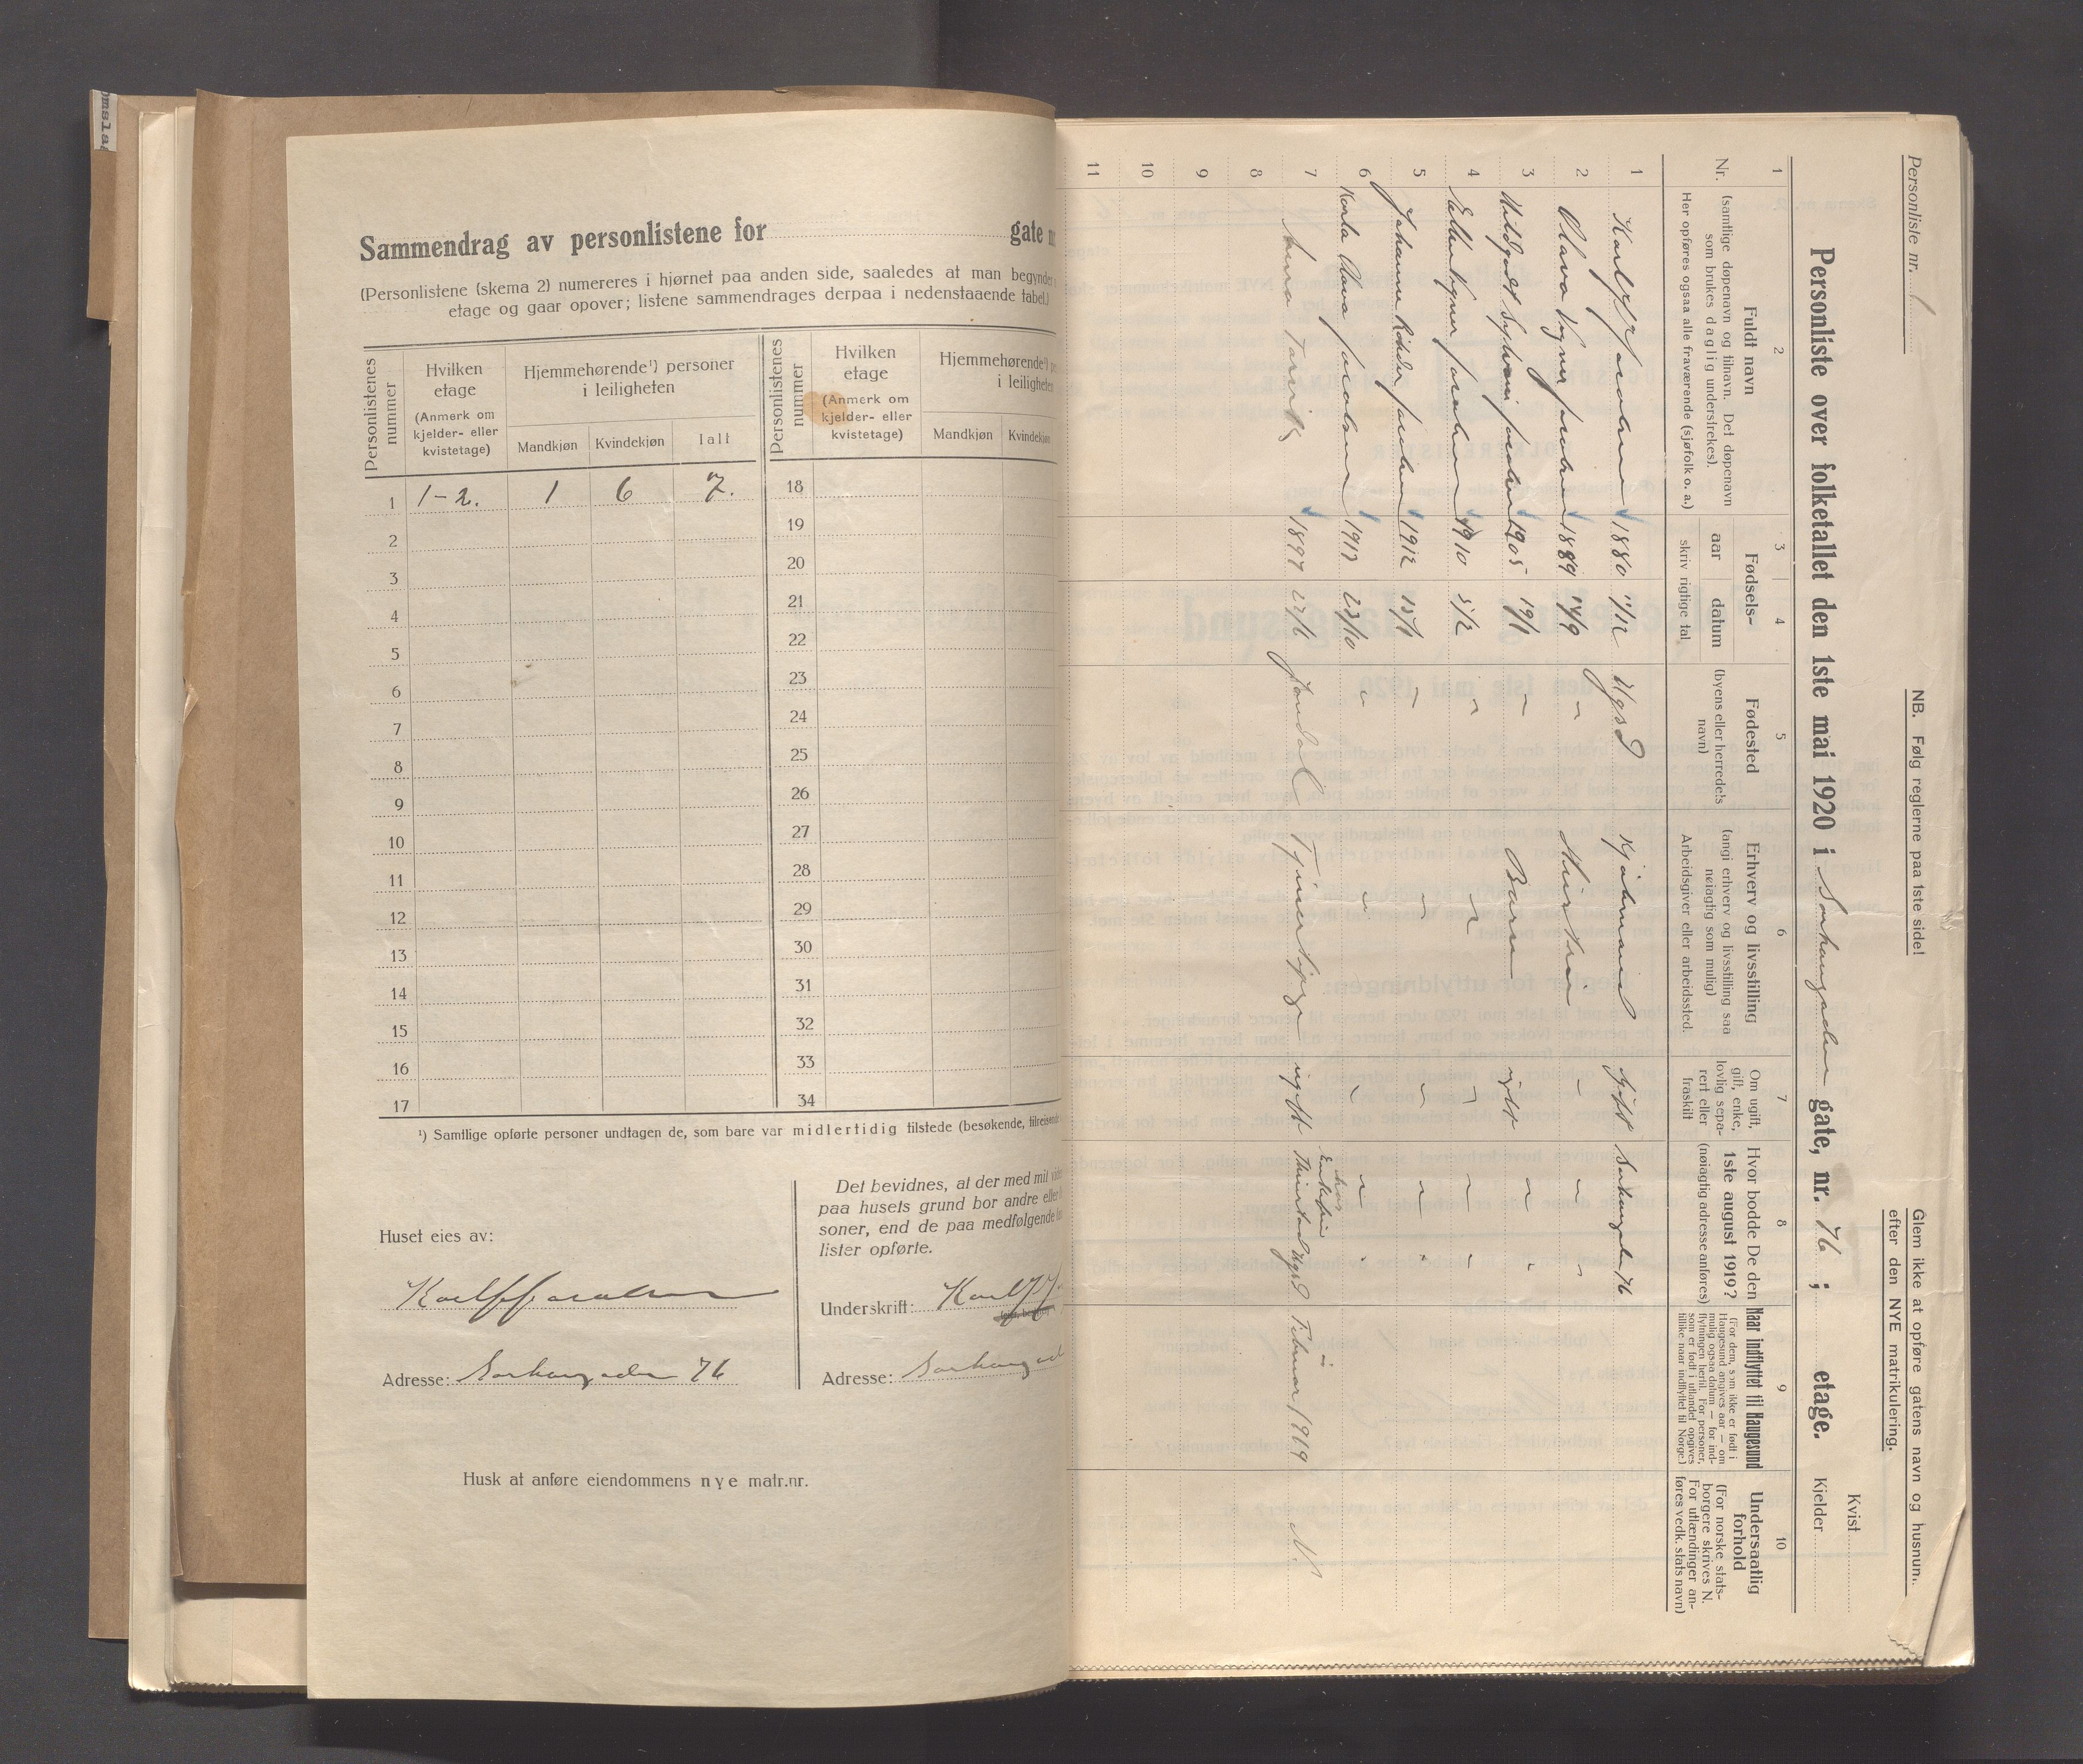 omslag
Sammendrag av personlistene for gate nr
(Personlistene (skema 2) numereres i hjørnet paa anden side, saaledes at man begynder
etage og gaar opover; listene sammendrages derpaa i nedenstaaende tabel.)
Personlistenes nummer
Hvilken etage
(Anmerk om kjelder- eller kvistetage)
Hjemmehørende¹) personer i leiligheten
Mandkjøn Kvindekjøn Ialt
Personlistenes nummer
Hvilken etage
(Anmerk om kjelder- eller kvistetage)
Hjemmehørende¹) i leiligheten
Mandkjøn Kvindekjøn
1 1-2. 1 6 7. 18
2 19
3 20
4 21
5 22
6 23
7 24
8 25
9 26
10 27
11 28
12 29
13 30
14 31
15 32
16 33
17 34
¹) Samtlige opførte personer undtagen de, som bare var midlertidig tilstede (besøkende, tilreisende
Huset eies av:
Adresse: 76
Husk at anføre eiendommens nye matr.nr.
Det bevidnes, at der med mit
paa husets grund bor andre eller
soner, end de paa medfølgende
lister opførte.
Underskrift: Karl
Adresse:
Personliste nr. 1
NB. Følg reglerne paa 1ste side!
Glem ikke at opføre gatens navn og husnum.
efter den NYE matrikulering.
Kvist
Personliste over folketallet den 1ste mai 1920 i gate, nr. 76 ; etage.
Kjelder
1 2 3 4 5 6 7 8 9 10
Nr.
Fuldt navn
(samtlige døpenavn og tilnavn. Det døpenavn
som brukes daglig understrekes).
Her opføres ogsaa alle fraværende (sjøfolk o. a.)
Fødsels-
aar datum
skriv rigtige tal
Fødested
(byens eller herredets
navn)
Erhverv og livsstilling
(angi erhverv og livsstilling saa
nøiagtig som mulig)
Arbeidsgiver eller arbeidssted.
Om ugift,
gift, enke,
lovlig sepa-
rert eller
fraskilt
Hvor bodde De den
1ste august 1919?
(nøiagtig adresse anføres)
Naar indflyttet til Haugesund
(For dem, som ikke er født i
Haugesund angives aar — om
mulig ogsaa datum — for ind-
flytningen hertil. For personer,
som er født i utlandet opgives
tillike naar indflyttet til Norge.)
Undersaatlig
forhold
(For norske stats-
borgere skrives N.
For utlændinger an-
føres vedk. stats navn)
1 Karl Jacobsen 1880 11/12 Hgsd Kjøbmand gift 76
2 Olava Jacobsen 1889 14/9 " Hustru " "
3 Jacobsen 1905 19/1 " Barn ugift " "
4 Jacobsen 1910 5/12 " " " "
5 Johanne Jacobsen 1912 15/1 " " " "
6 Karla Olava Jacobsen 1917 23/10 " " " "
7 Anna 1897 27/6 Jondal Tjenestepige ugift hos Hgsd Februar 1919 N.
8
9
10
11